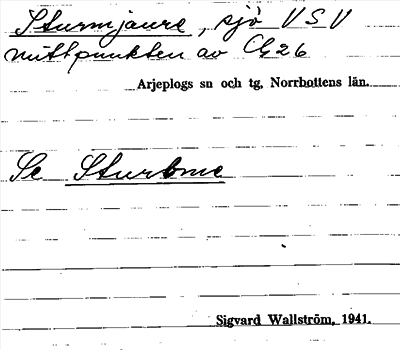 Sturmjaure, sjö VSV
mittpunkten av CG26
Arjeplogs sn och tg, Norrbottens län.
Se Sturbme
Sigvard Wallström, 1941.